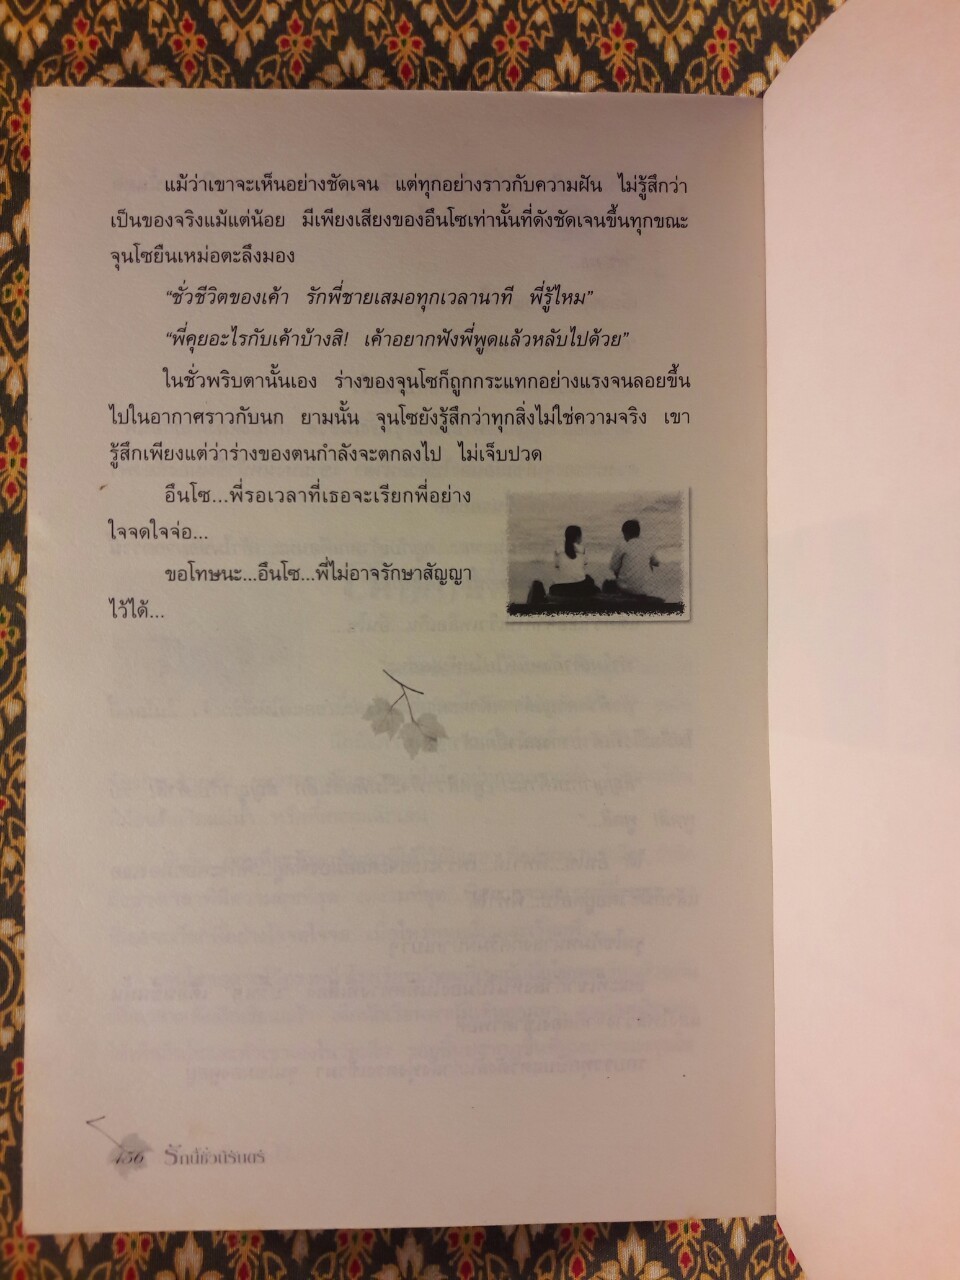 แม้ว่าเขาจะเห็นอย่างชัดเจน แต่ทุกอย่างราวกับความฝัน ไม่รู้สึกว่า
เป็นของจริงแม้แต่น้อย มีเพียงเสียงของอึนโซเท่านั้นที่ดังชัดเจนขึ้นทุกขณะ
จุนโซยืนเหม่อตะลึงมอง
“ชั่วชีวิตของเค้า รักพี่ชายเสมอทุกเวลานาที พี่รู้ไหม”
“พี่คุยอะไรกับเค้าบ้างสิ! เค้าอยากฟังพี่พูดแล้วหลับไปด้วย”
ในชั่วพริบตานั้นเอง ร่างของจุนโซก็ถูกกระแทกอย่างแรงจนลอยขึ้น
ไปในอากาศราวกับนก ยามนั้น จุนโซยังรู้สึกว่าทุกสิ่งไม่ใช่ความจริง เขา
รู้สึกเพียงแต่ว่าร่างของตนกำลังจะตกลงไป ไม่เจ็บปวด
อึนโซ...พี่รอเวลาที่เธอจะเรียกพี่อย่าง
ใจจดใจจ่อ...
ขอโทษนะ...อึนโซ...พี่ไม่อาจรักษาสัญญา
ไว้ได้...
456 รักนี้ชั่วนิรันดร์